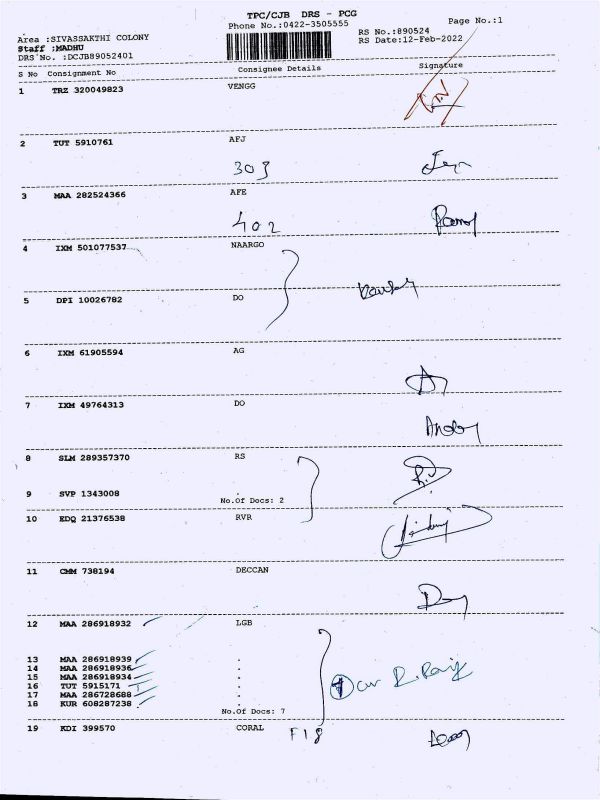 TPC/CJB DRS - PCG
Phone No.:0422-3505555
Page No.:1
Area :SIVASSAKTHI COLONY
RS No.:890524
Staff :MADHU
RS Date:12-Feb-2022
DRS No. :DCJB89052401
S No Consignment No Consignee Details Signature
1 TRZ 320049823 VENGG
2 TUT 5910761 AFJ
303
3 MAA 282524366 AFE
402
4 IXM 501077537 NAARGO
5 DPI 10026782 DO
6 IXM 61905594 AG
7 IXM 49764313 DO
8 SLM 289357370 RS
9 SVP 1343008 .
No.Of Docs: 2
10 EDQ 21376538 RVR
11 CMM 738194 DECCAN
12 MAA 286918932 LGB
13 MAA 286918939 .
14 MAA 286918936 .
15 MAA 286918934 .
16 TUT 5915171 .
17 MAA 286728688 .
18 KUR 608287238 .
No.Of Docs: 7
19 KDI 399570 CORAL F18